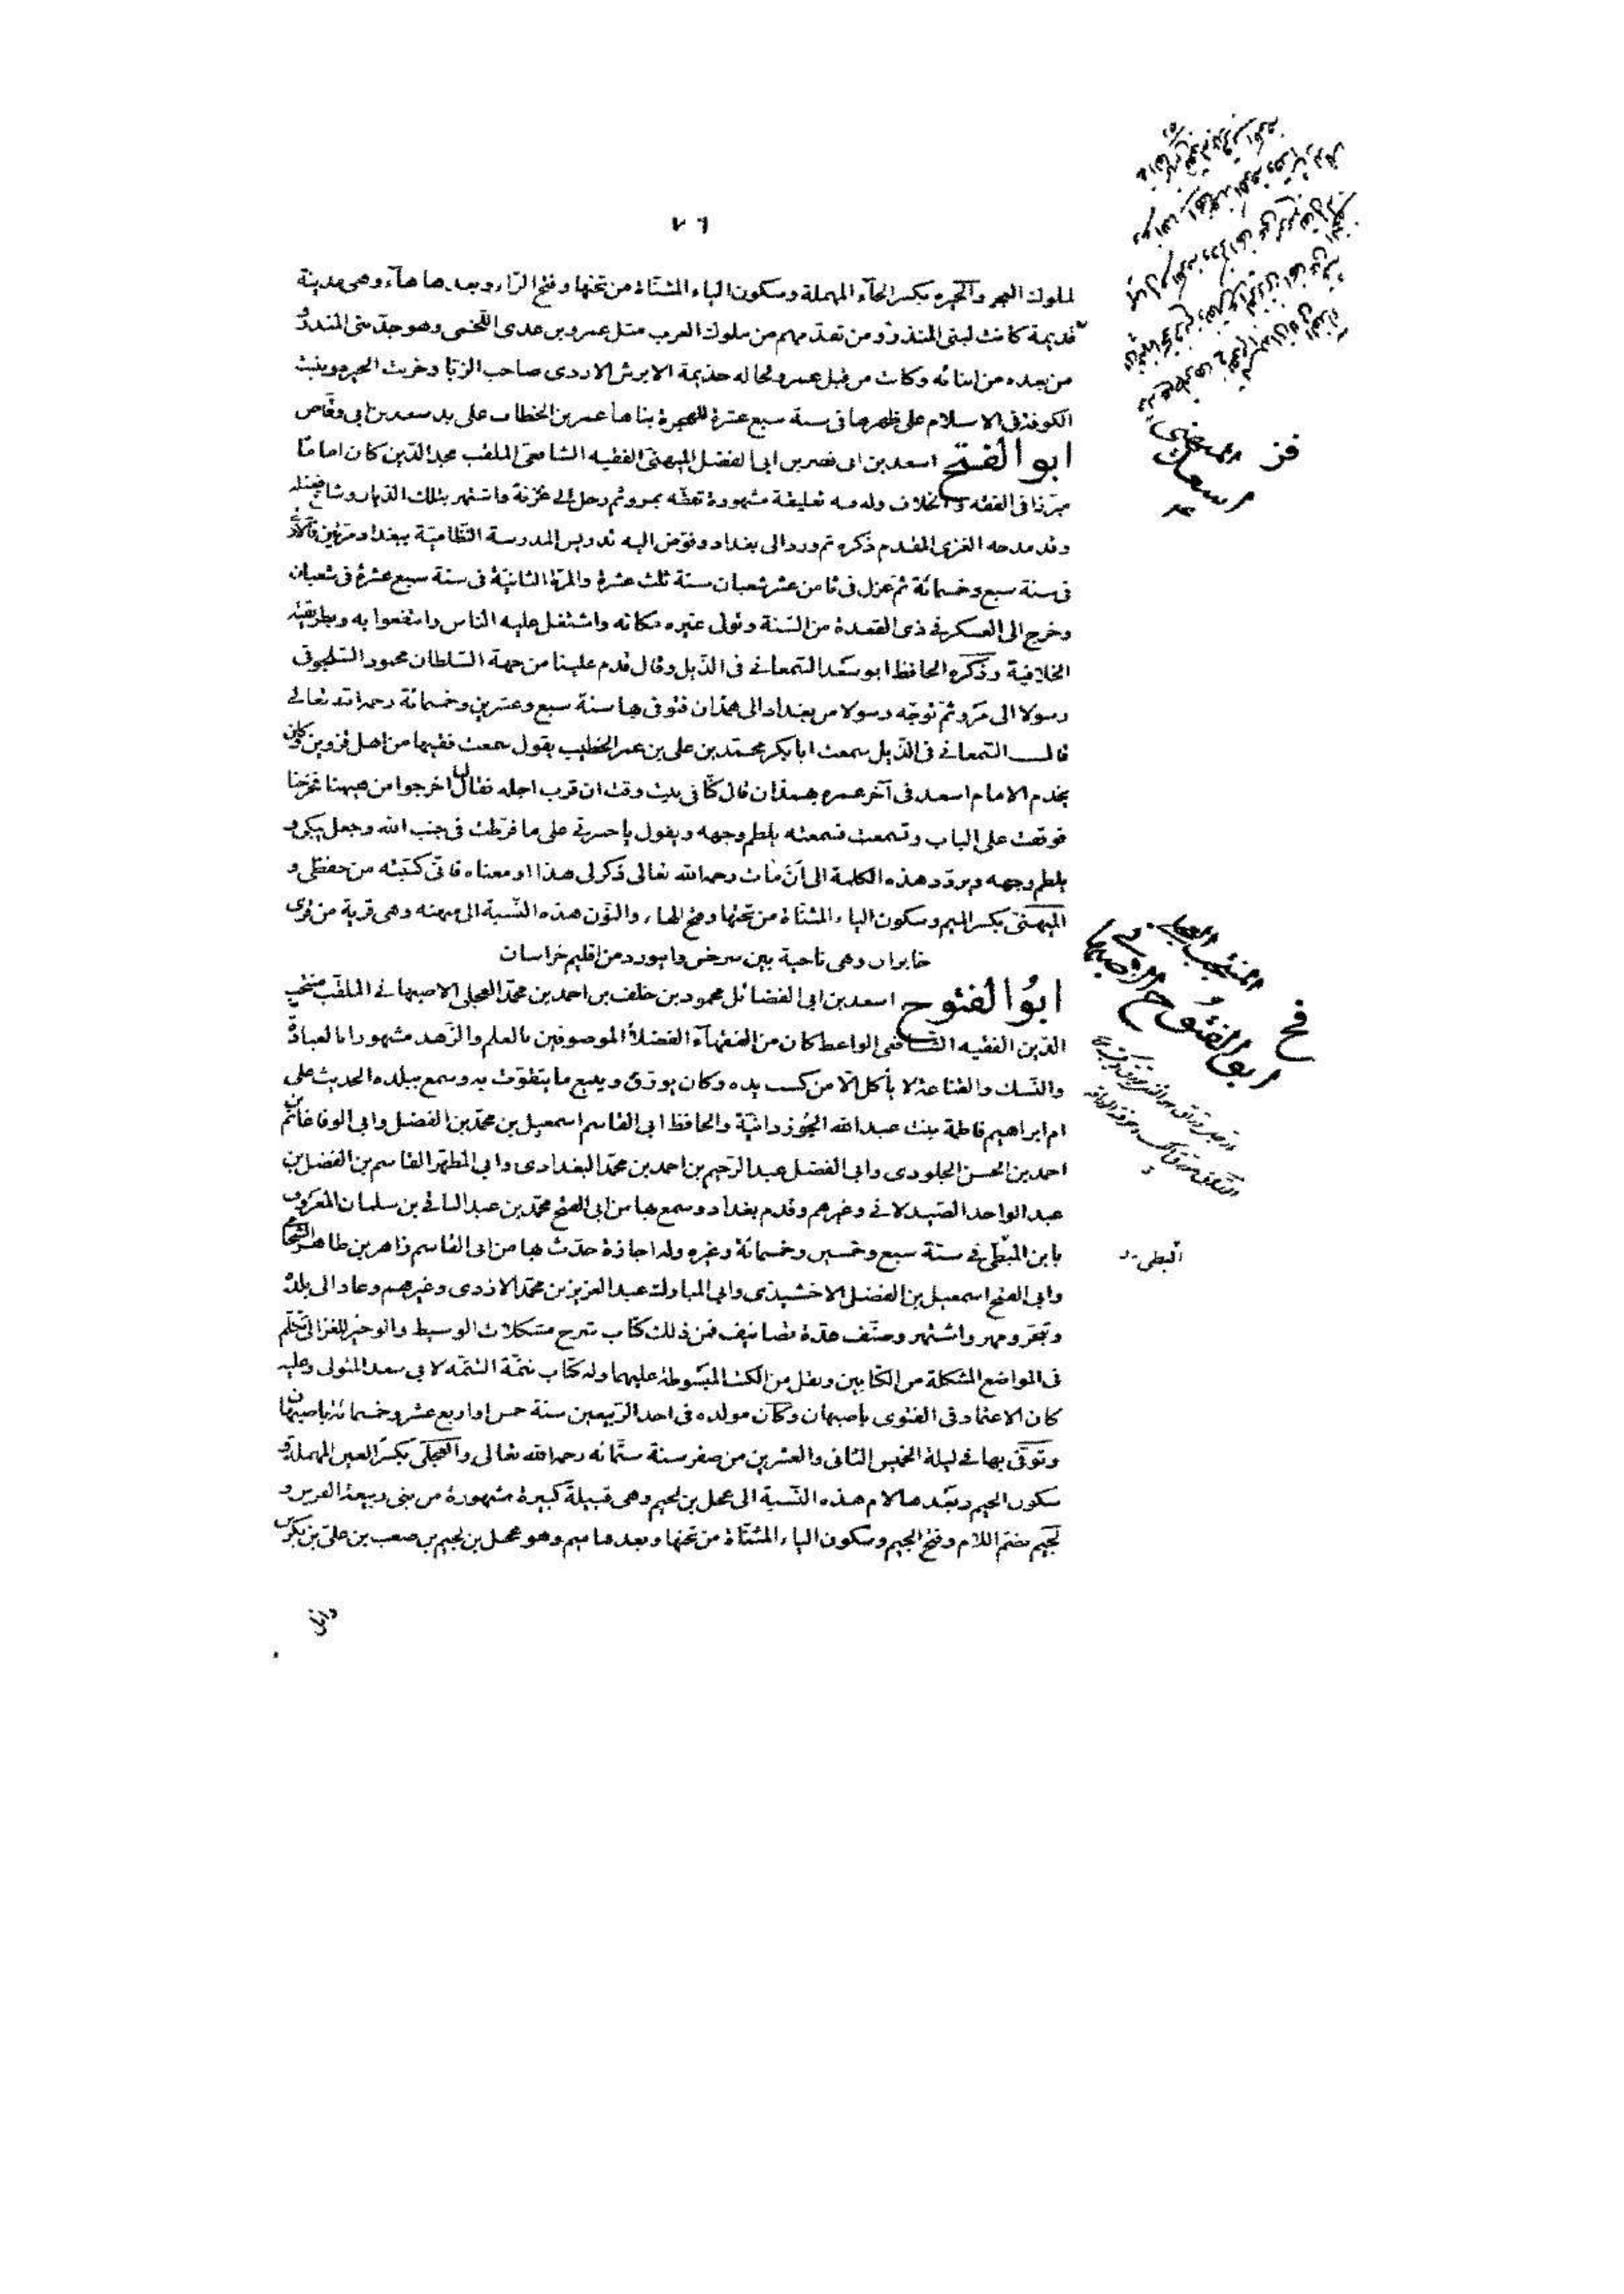 ٧٦
لملوك العجم والحيره بكسر الحآء المهملة وسكون الياء المثنّاة من تحتها وفتح الرّاء وبعدها هآء وهى مدينة
قديمة كانت لبنى المنذر ومن تقدّمهم من ملوك العرب مثل عمرو بن عدى اللّخمى وهو جدّ بنى المنذر و
من بعده من ابنائه وكانت من قبل عمرو لخاله جذيمة الابرش الازدى صاحب الزبّا وخربت الحيره وبنيت
الكوفة فى الاسلام على ظهرها فى سنة سبع عشرة للهجرة بناها عمر بن الخطاب على يد سعد بن ابى وقّاص
ابو الفتح اسعد بن ابى نصر بن ابى الفضل الميهنى الفقيه الشافعى الملقب مجد الدّين كان اماما
مبرّزا فى الفقه والخلاف وله فيه تعليقة مشهورة تفقّه بمرو ثم رحل الى غزنة واشتهر بتلك الديار وشاع فضله
وقد مدحه الغزى المقدم ذكره ثم ورد الى بغداد وفوّض اليه تدريس المدرسة النّظاميّة ببغداد مرّتين فالاولى
فى سنة سبع وخسمائة ثم عزل فى ثامن عشر شعبان سنة ثلث عشرة والمرّة الثانيّة فى سنة سبع عشرة فى شعبان
وخرج الى العسكر فى ذى القعدة من السّنة وتولى غيره مكانه واشتغل عليه الناس وانتفعوا به وبطريقته
الخلافية وذكره الحافظ ابو سعد السّمعانى فى الذّيل وقال قدم علينا من جهة السّلطان محمود السّلجوقى
رسولا الى مرو ثمّ توجّه رسولا من بغداد الى همذان فتوفى بها سنة سبع وعشرين وخمسمائة رحمه الله تعالى
قال السّمعانى فى الذّيل سمعت ابا بكر محمّد بن على بن عمر الخطيب يقول سمعت فقيها من اهل قزوين وكان
يخدم الامام اسعد فى آخر عمره بهمذان قال كنّا فى بيت وقت ان قرب اجله فقال لنا اخرجوا من ههنا فخرجنا
فوقفت على الباب وتسمعت فسمعته يلطم وجهه ويقول يا حسرتى على ما فرّطت فى جنب الله وجعل يبكى و
يلطم وجهه ويردّد هذه الكلمة الى ان مات رحمه الله تعالى ذكر لى هذا او معناه فانّى كتبته من حفظى و
الميهنىّ بكسر الميم وسكون الياء المثنّاة من تحتها وفتح الهاء والنّون هذه النّسبة الى ميهنه وهى قرية من قرى
خابران وهى ناحية بين سرخس وابيورد من اقليم خراسان
ابُو الفتوح اسعد بن ابى الفضائل محمود بن خلف بن احمد بن محمّد العجلى الاصبهانى الملقّب منتخب
الدّين الفقيه الشافعى الواعظ كان من الفقهآء الفضلآ الموصوفين بالعلم والزّهد مشهورا بالعبادة
والنّسك والقناعة لا يأكل الّا من كسب يده وكان يورّق ويبيع ما يتقوّت به وسمع ببلده الحديث على
ام ابراهيم فاطمة بنت عبد الله الجُوزدانيّة والحافظ ابى القاسم اسمعيل بن محمّد بن الفضل وابى الوفا غانم بن
احمد بن الحسن الجلودى وابى الفضل عبد الرّحيم بن احمد بن محمّد البغدادى وابى المطهّر القاسم بن الفضل بن
عبد الواحد الصّيدلانى وغيرهم وقدم بغداد وسمع بها من ابى الفتح محمّد بن عبد الباقى بن سلمان المعروف
بابن البطّى فى سنة سبع وخمسين وخمسمائة وغيره وله اجازة حدّث بها من ابى القاسم زاهر بن طاهر الشحّامى
وابى الفتح اسمعيل بن الفضل الاخشيذى وابى المبارك عبد العزيز بن محمّد الازدى وغيرهم وعاد الى بلده
وتبحّر ومهر واشتهر وصنّف عدّة تصانيف فمن ذلك كتاب شرح مشكلات الوسيط والوجيز للغزالى تكلّم
فى المواضع المشكلة من الكتابين ونقل من الكتب المبسوطة عليهما وله كتاب تتمّة التتمّه لابى سعد المتولى وعليه
كان الاعتماد فى الفتوى باصبهان وكان مولده فى احد الرّبيعين سنة خمس او اربع عشر وخمسمائة باصبهان
وتوفّى بها فى ليلة الخميس الثانى والعشرين من صفر سنة ستّمائه رحمه الله تعالى والعجلى بكسر العين المهملة و
سكون الجيم وبعدها لام هذه النّسبة الى عجل بن لجيم وهى قبيلة كبيرة مشهورة من بنى ربيعة الفرس و
لجيم بضمّ اللام وفتح الجيم وسكون الياء المثنّاة من تحتها وبعدها ميم وهو عجل بن لجيم بن صعب بن علىّ بن بكر بن
وائل
فز
اسعد الميهنى
فح
ابو الفتُوح الاصبهانى
المنتخب العجلى
البطى